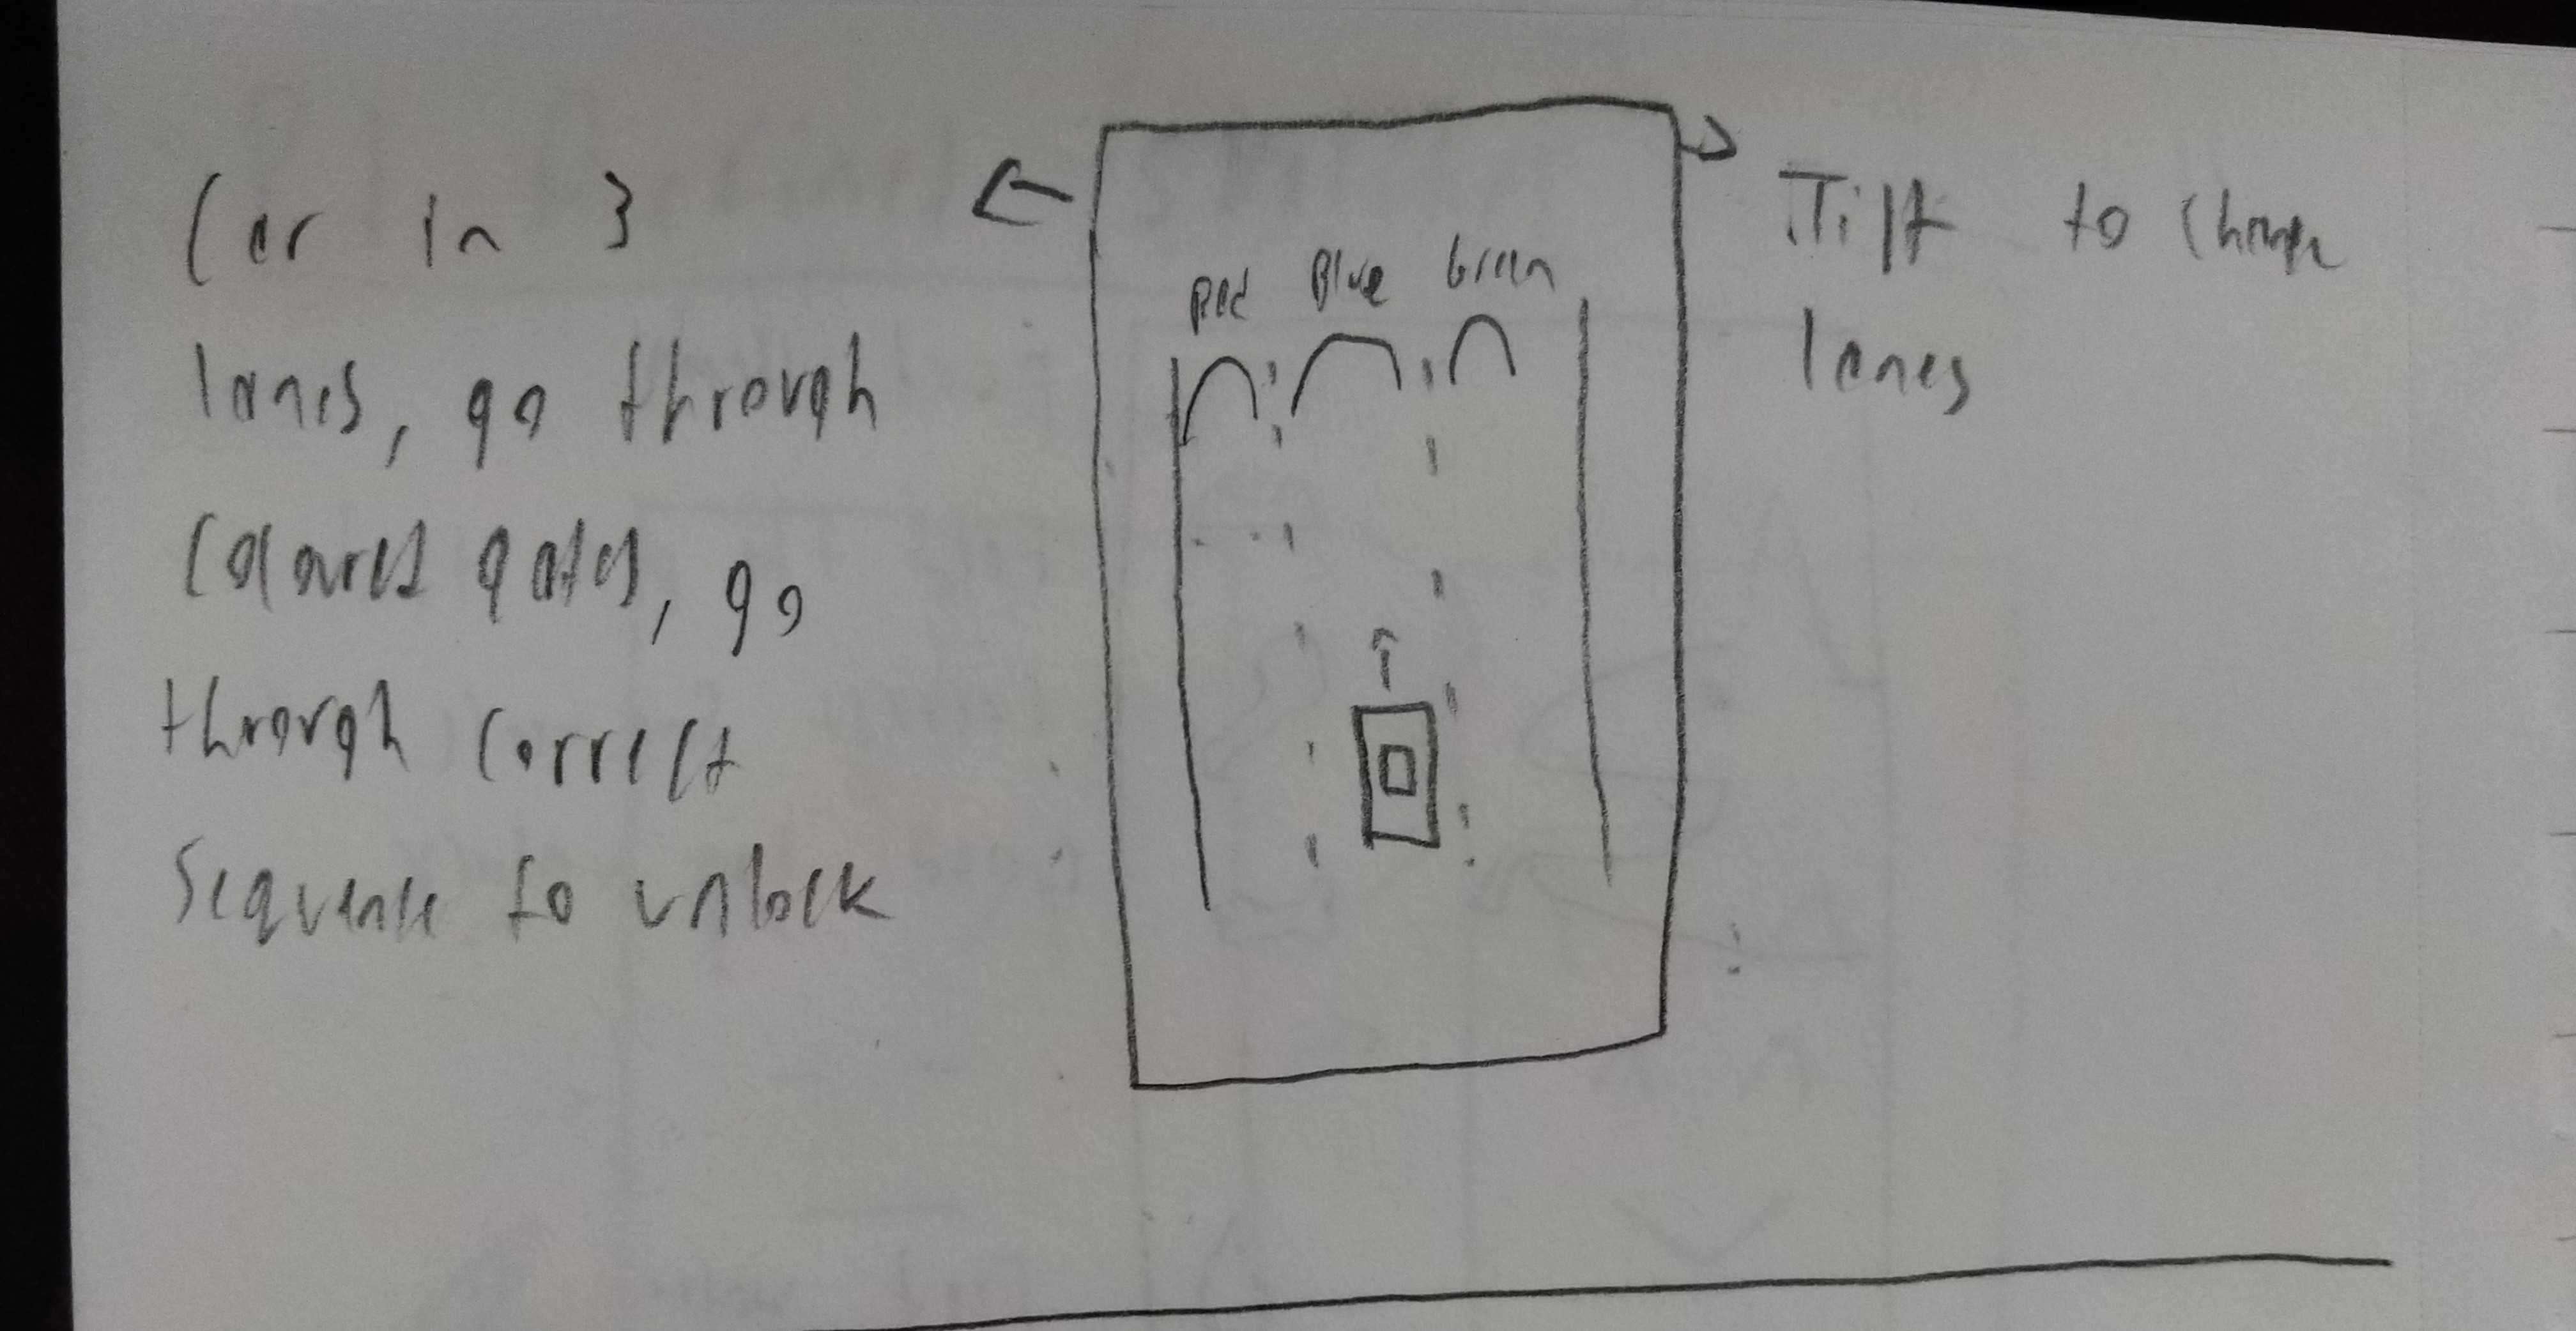 Car in 3
lanes, go through
coloured gates, go
through correct
sequence to unlock
Red Blue Green
Tilt to change
lanes